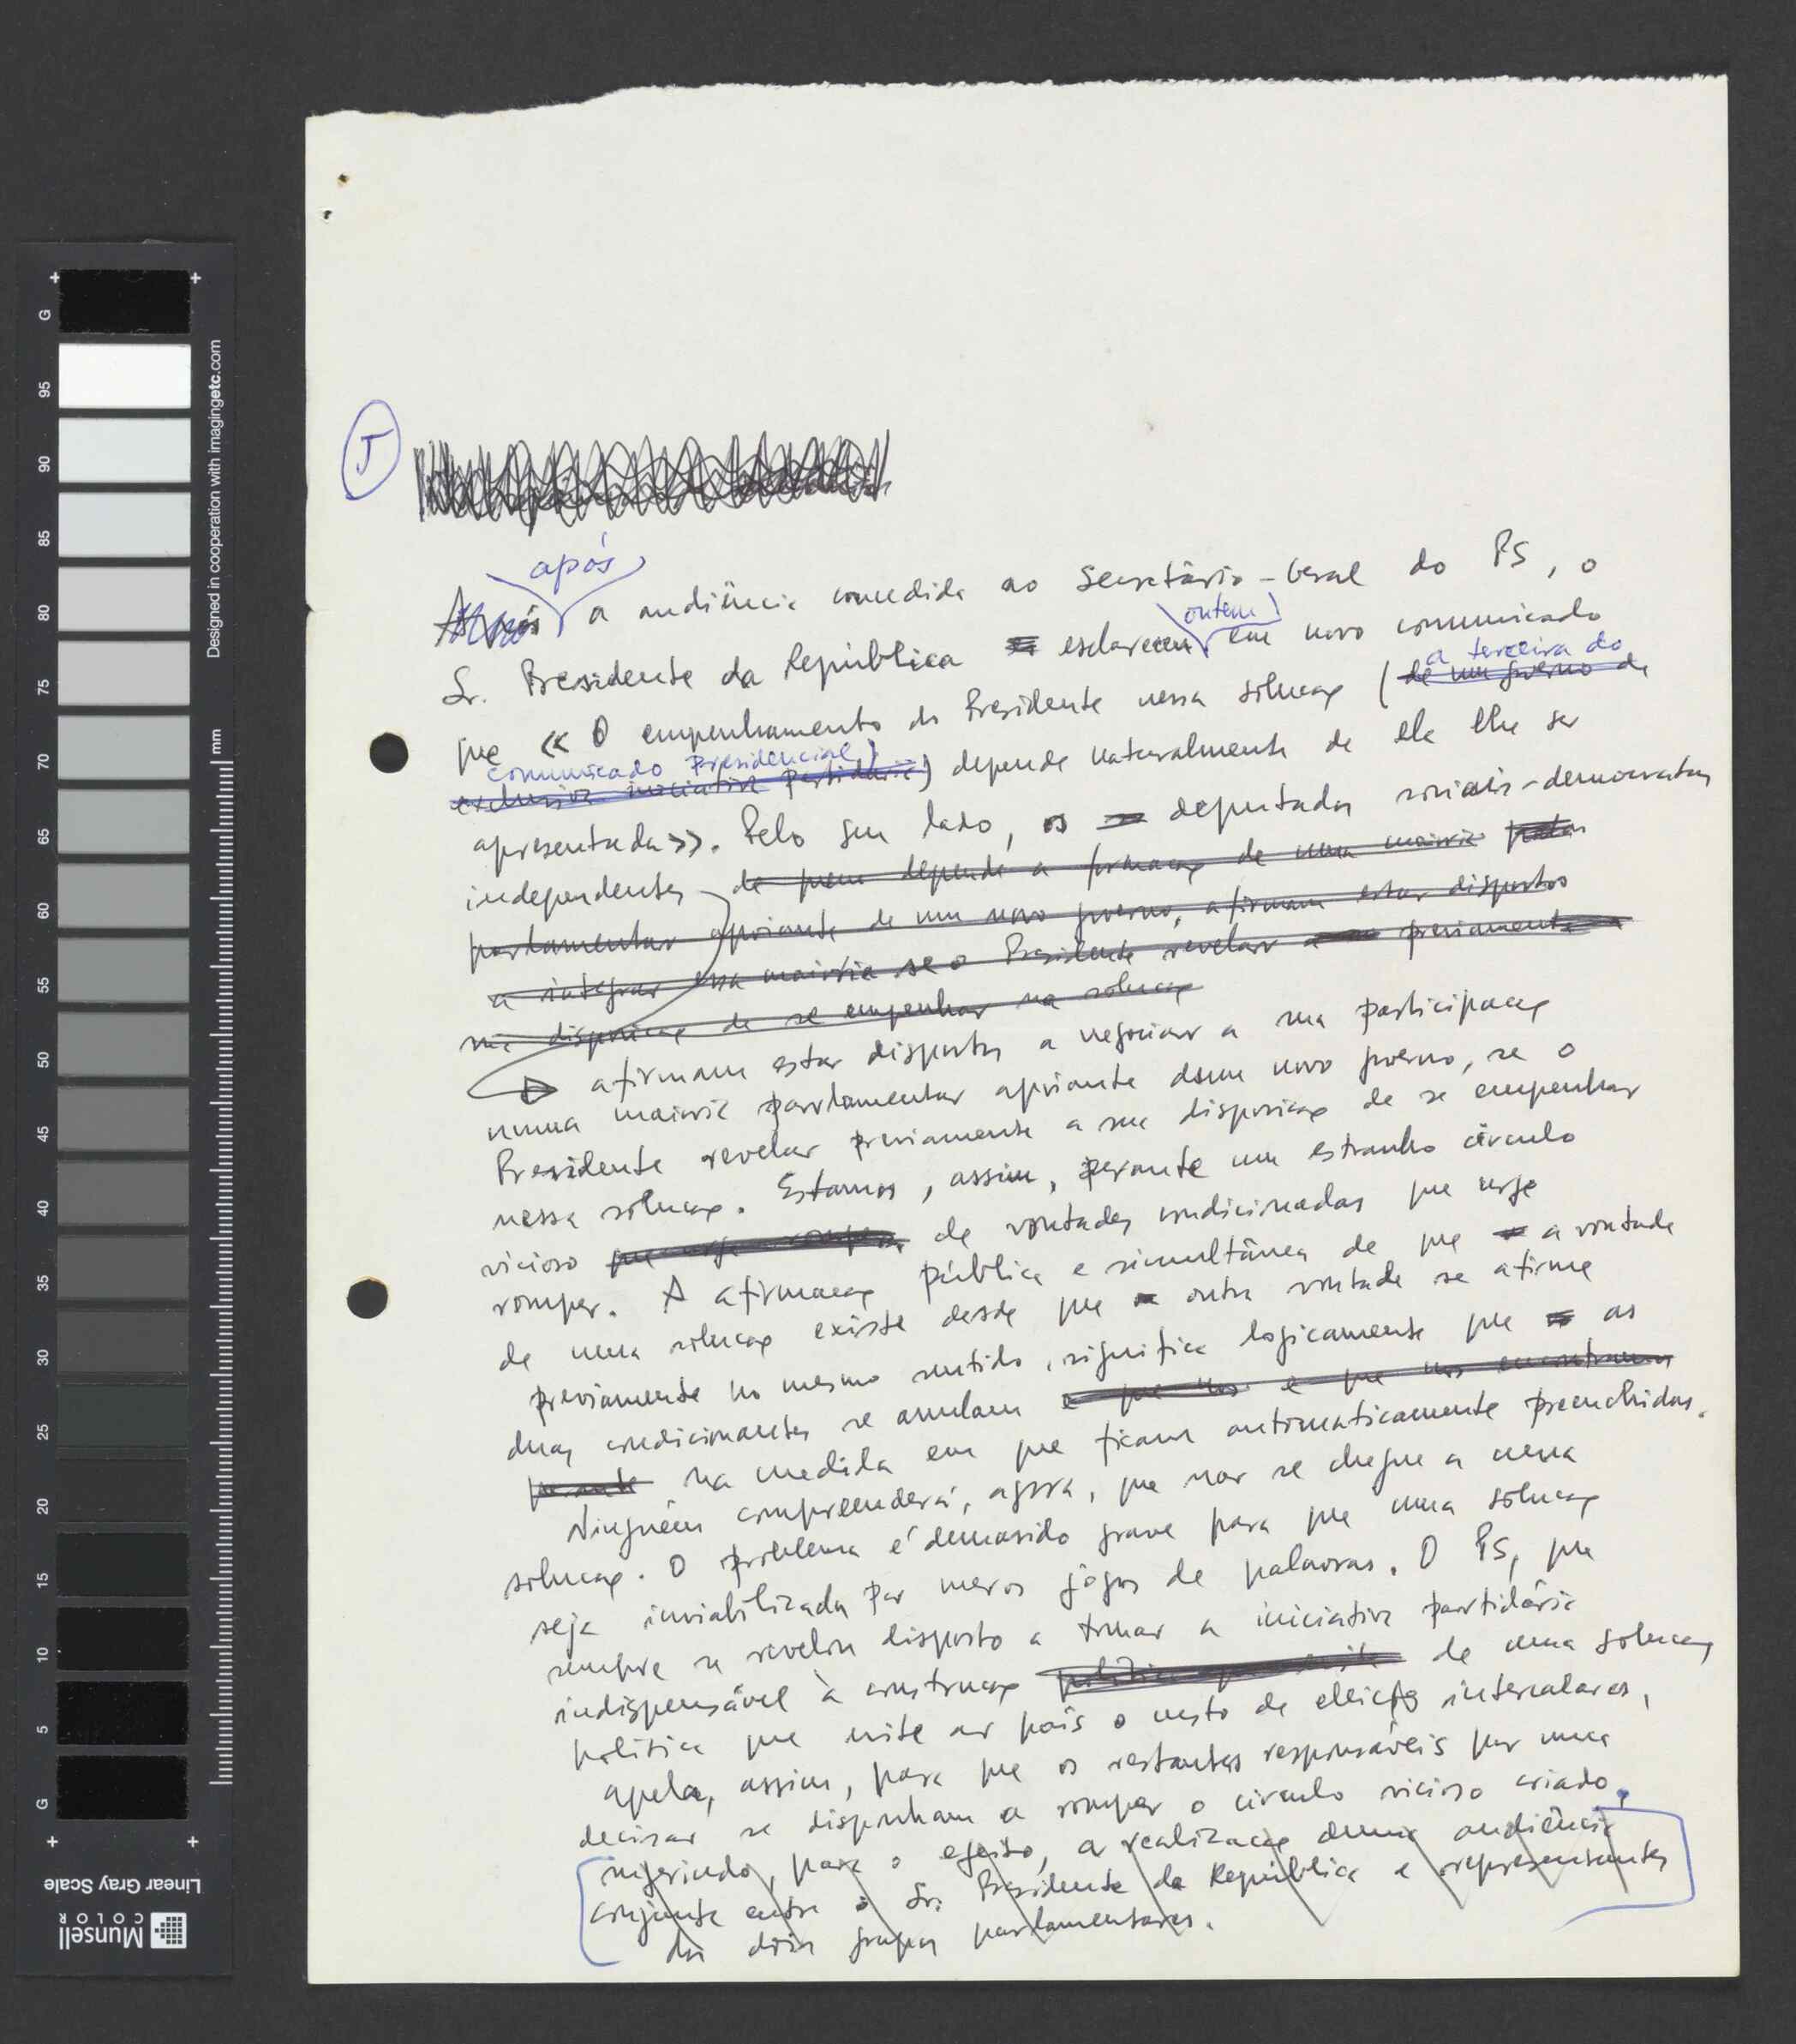 5
após
a audiência concedida ao Secretário-Geral do PS, o
ontem
Sr. Presidente da República esclareceu em novo comunicado
a terceira do
que « O empenhamento do Presidente nessa solução ( de um governo de
comunicado Presidencial)
exclusiva iniciativa partidária) depende naturalmente de ela lhe ser
apresentada». Pelo seu lado, os deputados sociais-democratas
independentes de quem depende a formação de uma maioria
parlamentar apoiante de um novo governo, afirmam estar dispostos
a integrar essa maioria se o Presidente revelar previamente
sua disposição de se empenhar na solução
afirmam estar dispostos a negociar a sua participação
numa maioria parlamentar apoiante dum novo governo, se o
Presidente revelar previamente a sua disposição de se empenhar
nessa solução. Estamos, assim, perante um estranho círculo
vicioso que urge romper de vontades condicionadas que urge
romper. A afirmação pública e simultânea de que a vontade
de uma solução existe desde que outra vontade se afirme
previamente no mesmo sentido, significa logicamente que as
duas condicionantes se anulam e que nos e que nos encontramos
perante na medida em que ficam automaticamente preenchidas.
Ninguém compreenderá, agora, que não se chegue a uma
solução. O problema é demasido grave para que uma solução
seja inviabilizada por meros jogos de palavras. O PS, que
sempre se revelou disposto a tomar a iniciativa partidária
indispensável à construção de uma solução
política que evite ao país o custo de eleições intercalares,
apela, assim, para que os restantes responsáveis por uma
decisão se disponham a romper o círculo vicioso criado,
sugerindo, para o efeito, a realização duma audiência
conjunta entre o Sr. Presidente da República e representantes
dos dois grupos parlamentares.
Designed in cooperation with imagingetc.com
mm
G
95
90
85
80
75
70
65
60
55
50
45
40
35
30
25
20
15
10
5
G
Linear Gray Scale
Munsell
COLOR